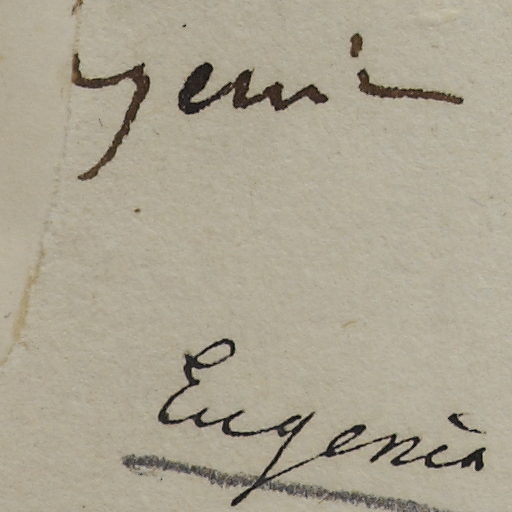 genia
Eugenia